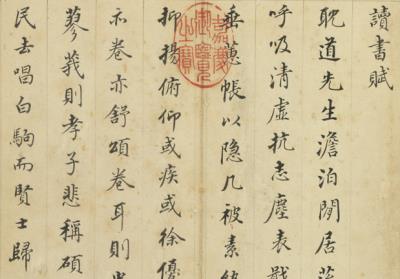 讀書賦
耽道先生澹泊閒居
呼吸清虛抗志塵表戢
垂蕙帳以隱几被素
抑揚俯仰或疾或徐優
亦卷亦舒頌卷耳則
蓼莪則孝子悲稱碩
民去唱白駒而賢士歸
嘉慶御覽之寶